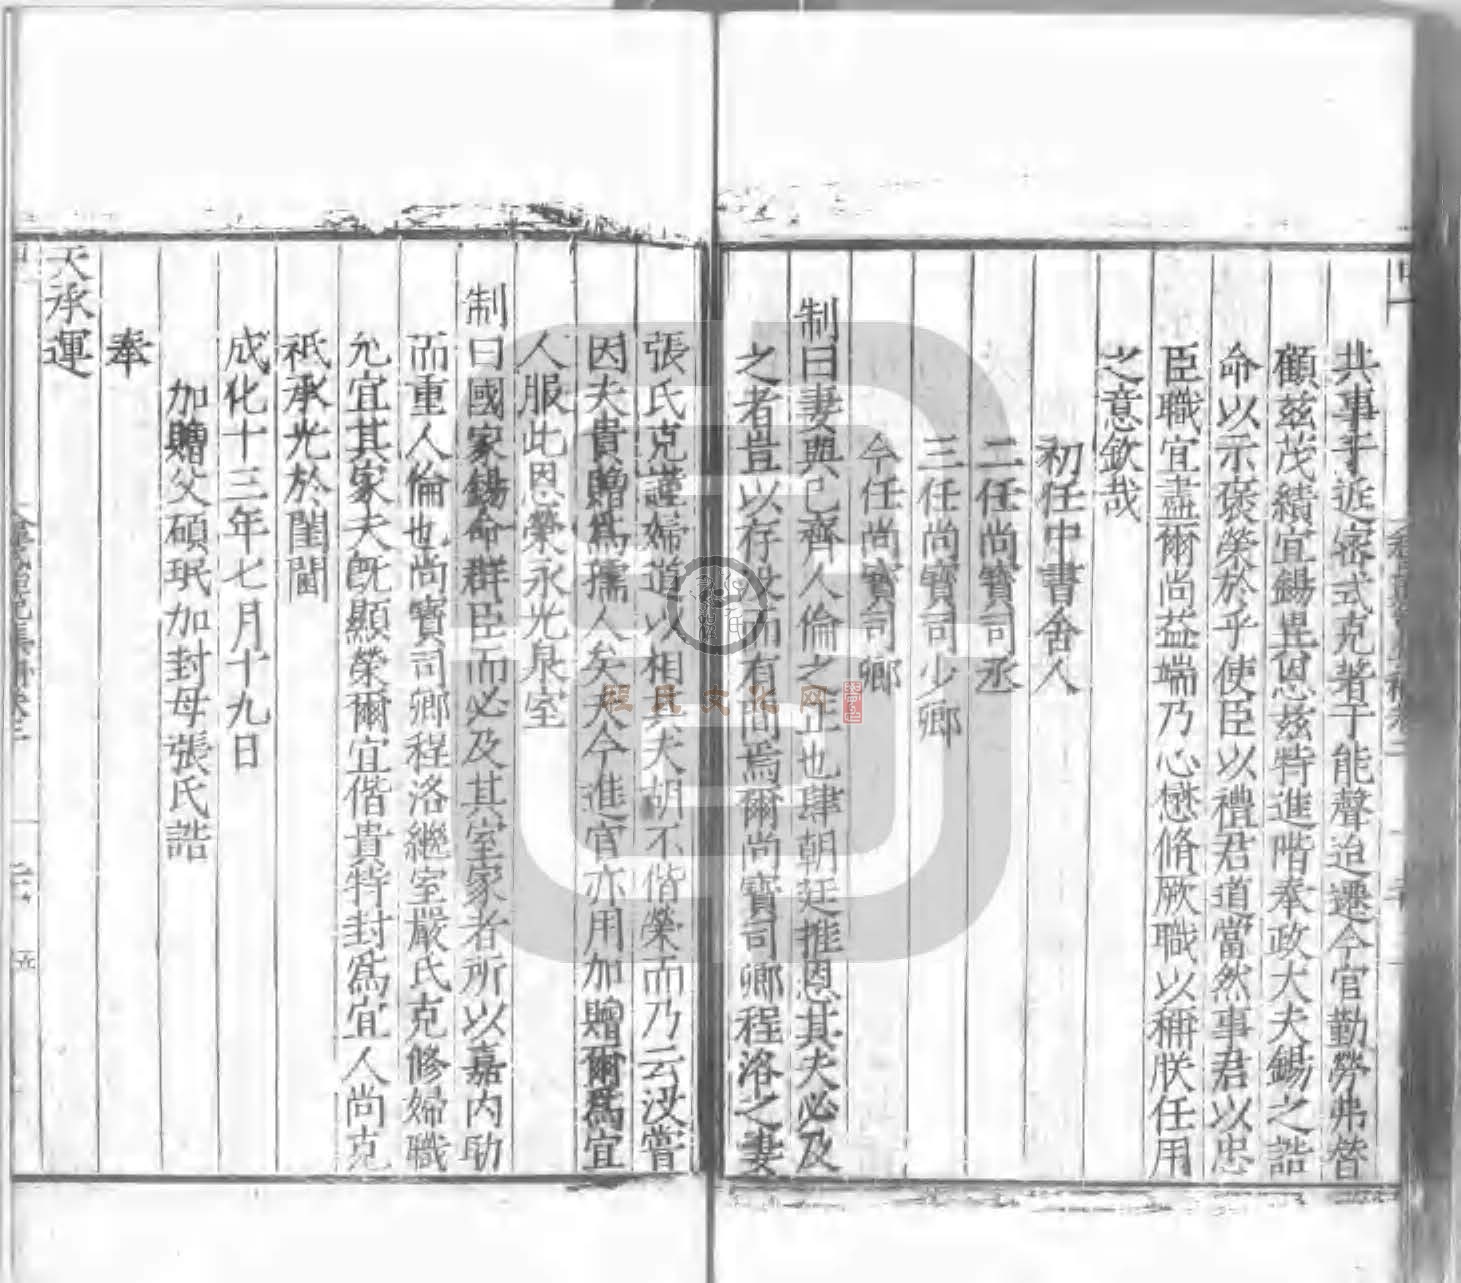 共事于近密式克著于能聲迨遷今官勤勞弗替
顧茲茂績宜錫異恩茲特進階奉政大夫錫之誥
命以示褒榮於乎使臣以禮君道當然事君以忠
臣職宜盡爾尚益端乃心懋脩厥職以稱朕任用
之意欽哉
初任中書舍人
二任尚寶司丞
三任尚寶司少卿
今任尚寶司卿
制曰妻與己齊人倫之正也肆朝廷推恩其夫必及
之者豈以存歿而有間焉爾尚寶司卿程洛之妻
張氏克謹婦道以相其夫胡不偕榮而乃云沒嘗
因夫貴贈爲孺人矣夫今進官亦用加贈爾爲宜
人服此恩榮永光泉室
制曰國家錫命群臣而必及其室家者所以嘉內助
而重人倫也尚寶司卿程洛繼室嚴氏克修婦職
允宜其家夫既顯榮爾宜偕貴特封爲宜人尚克
祇承光於閨閫
成化十三年七月十九日
加贈父碩珉加封母張氏誥
奉
天承運
程氏文化网